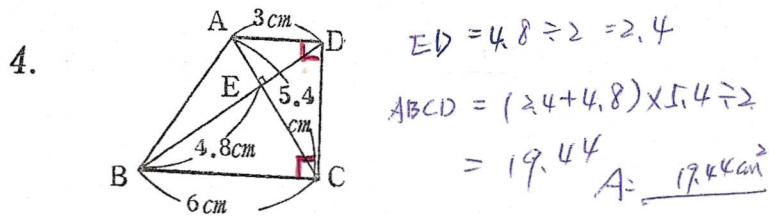 4.
A 3cm D
E 5.4 cm
4.8cm
B C
6cm
ED = 4.8 ÷ 2 = 2.4
ABCD = (2.4+4.8)×5.4÷2
= 19.44
A: 19.44cm²